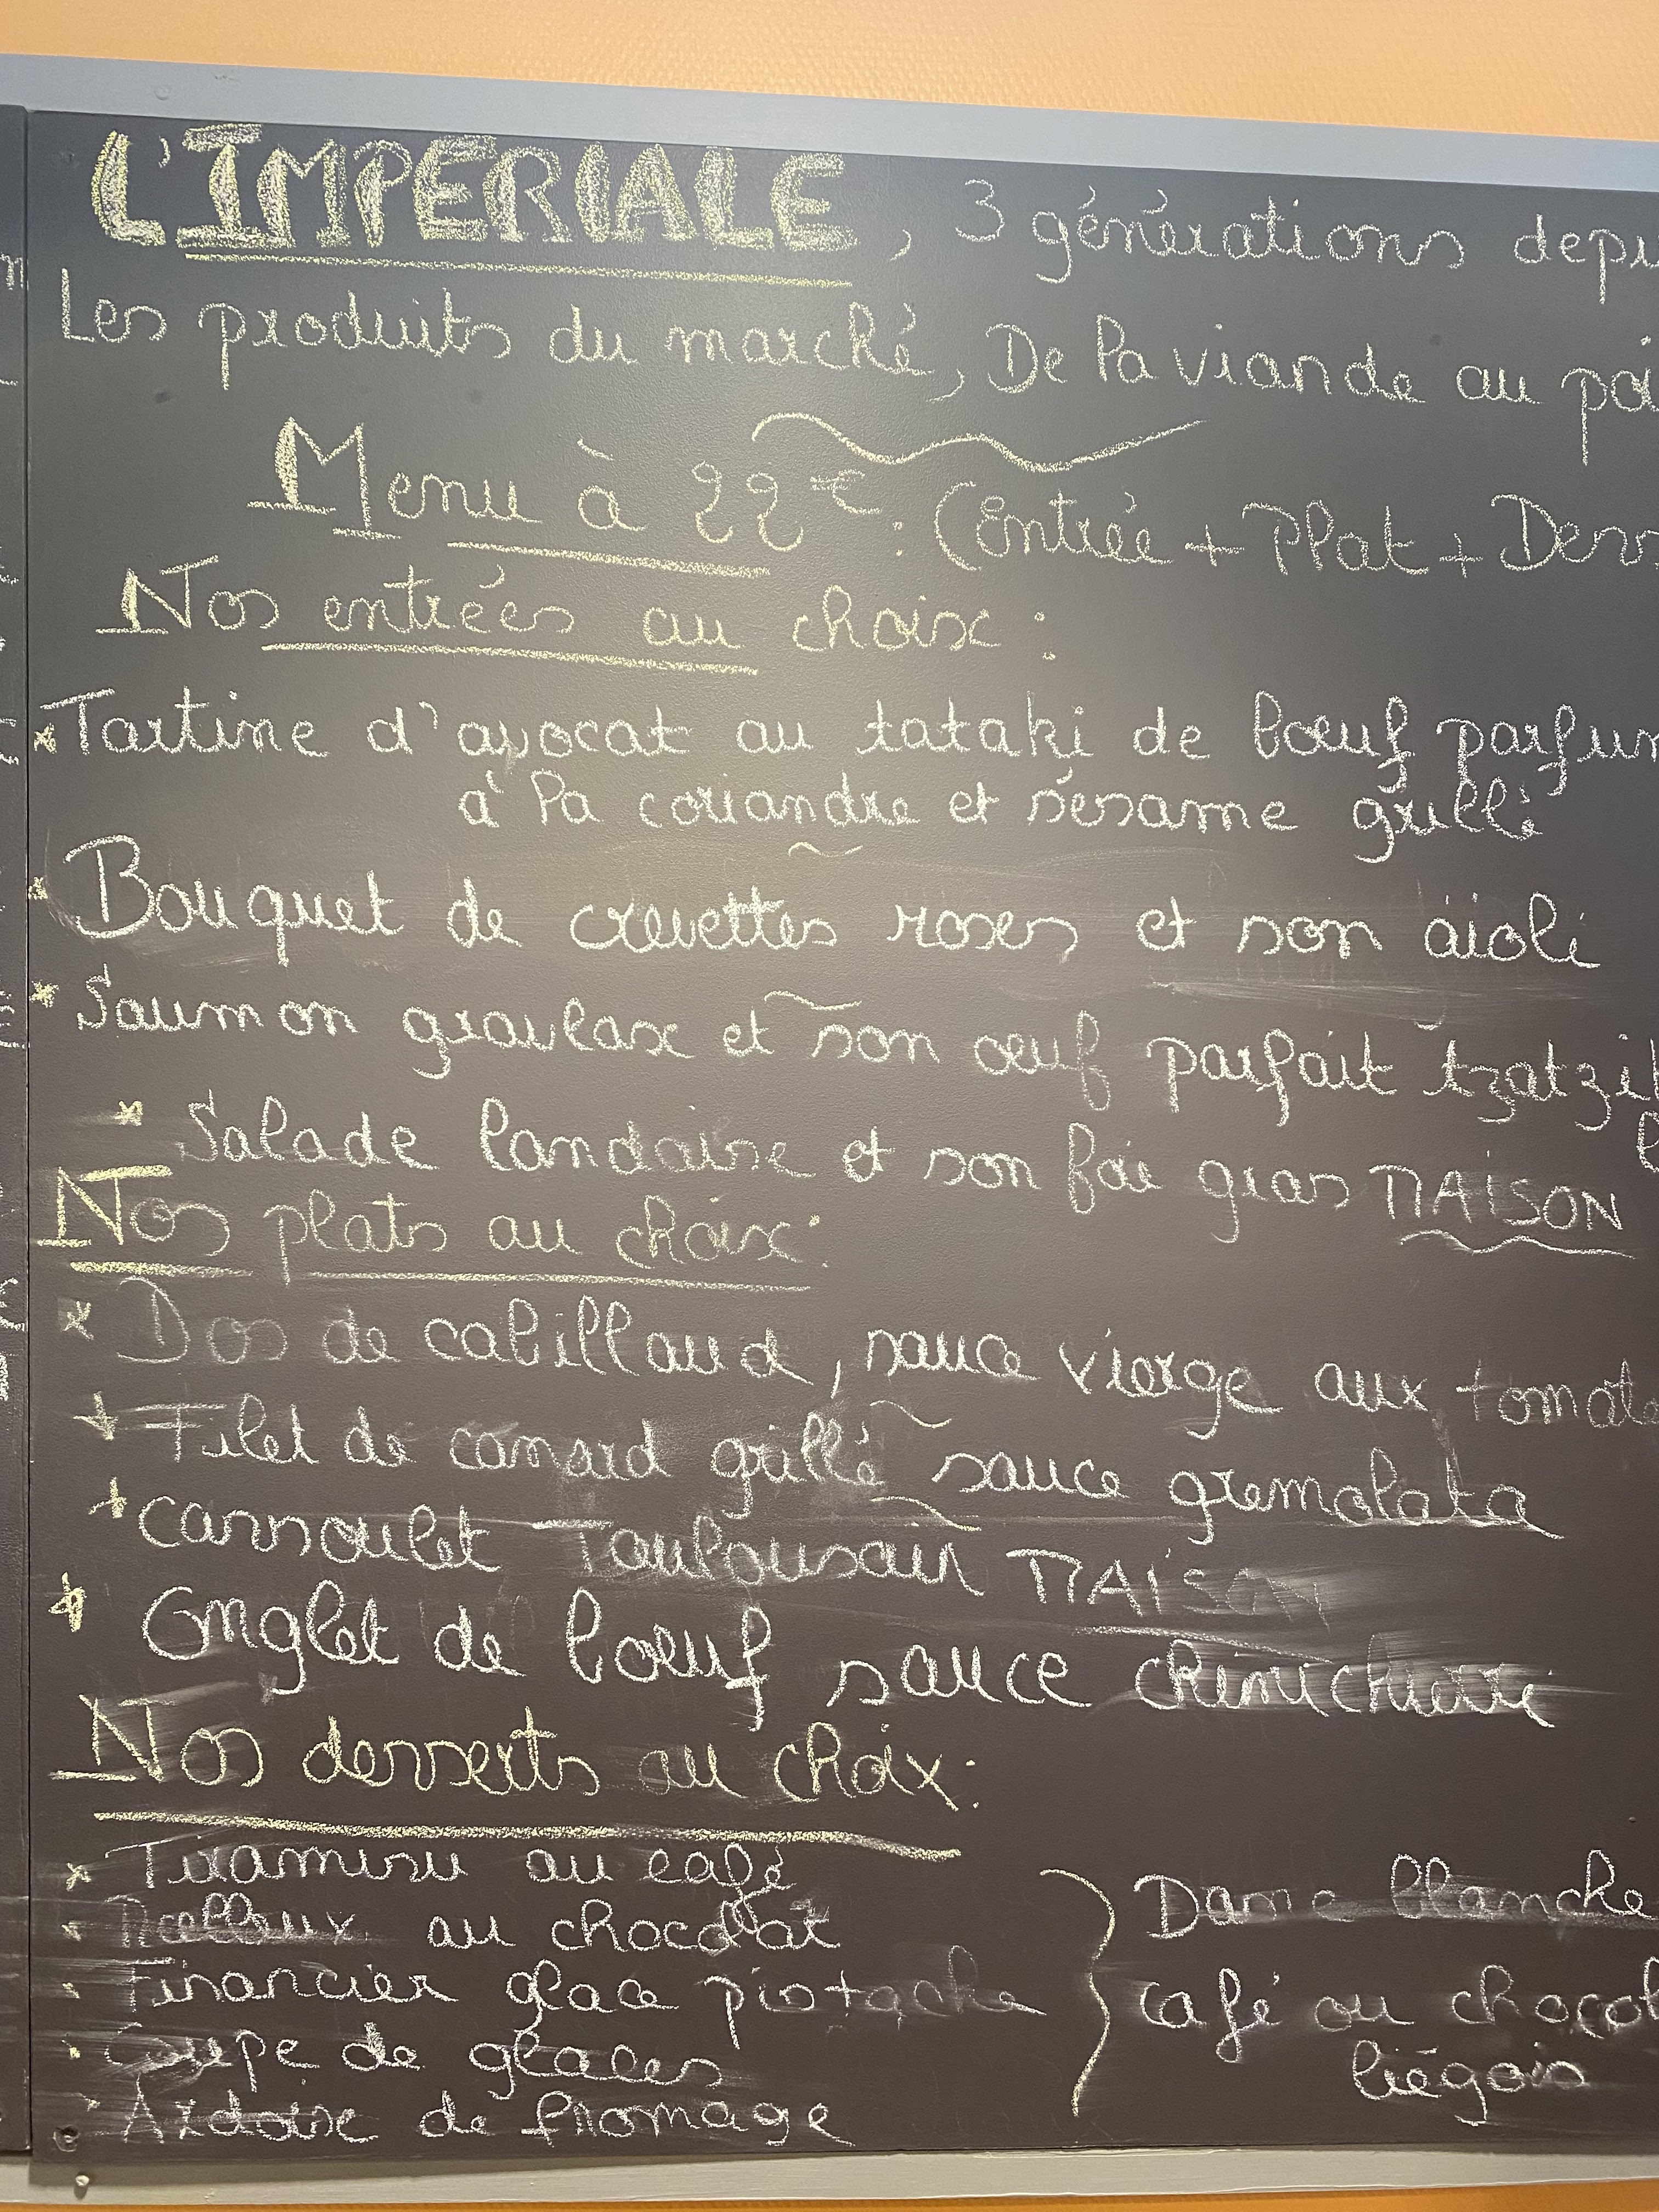 L'IMPERIALE, 3 générations depu
Les produits du marché, De la viande au poi
Menu à 22€ : (Entrée + Plat + Dess
Nos entrées au choix :
* Tartine d'avocat au tataki de bœuf parfum
à la coriandre et sésame grillé
* Bouquet de crevettes roses et son aïoli
* Saumon gravlax et son œuf parfait tzatzik
* Salade landaise et son foie gras MAISON
Nos plats au choix:
* Dos de cabillaud, sauce vierge aux tomate
* Filet de canard grillé sauce gremolata
* Cassoulet Toulousain MAISON
* Onglet de bœuf sauce chimichurri
Nos desserts au choix:
* Tiramisu au café
* Moelleux au chocolat
* Financier glace pistache
* Coupe de glaces
* Ardoise de fromage
Dame blanche
Café ou chocol
liégois